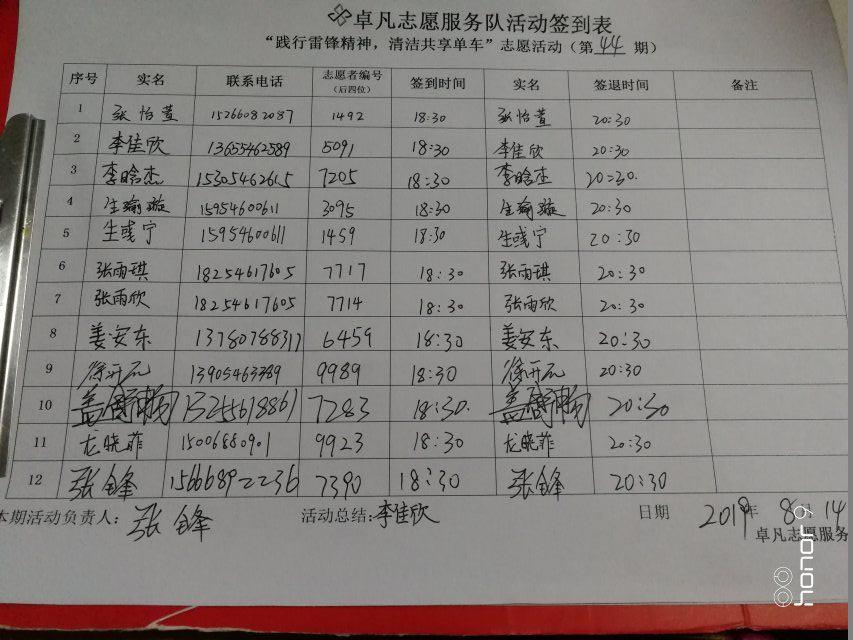 卓凡志愿服务队活动签到表
“践行雷锋精神，清洁共享单车”志愿活动（第 44 期）
序号 实名 联系电话 志愿者编号（后四位） 签到时间 实名 签退时间 备注
1 张怡萱 15266082087 1492 18:30 张怡萱 20:30
2 李佳欣 13655462589 5091 18:30 李佳欣 20:30
3 李晗杰 15305462615 7205 18:30 李晗杰 20:30.
4 生瑜璇 15954600611 3095 18:30 生瑜璇 20:30
5 生彧宁 15954600611 1459 18:30 生彧宁 20:30
6 张雨琪 18254617605 7717 18:30 张雨琪 20:30
7 张雨欣 18254617605 7714 18:30 张雨欣 20:30
8 姜安东 13780788317 6459 18:30 姜安东 20:30
9 徐开元 13905463389 9989 18:30 徐开元 20:30
10 13255618861 7283 18:30. 20:30
11 龙晓菲 15006880901 9923 18:30 龙晓菲 20:30
12 张锋 15666892236 7390 18:30 张锋 20:30
本期活动负责人： 张锋 活动总结: 李佳欣 日期 2019年 8 14
卓凡志愿服务
honor 9